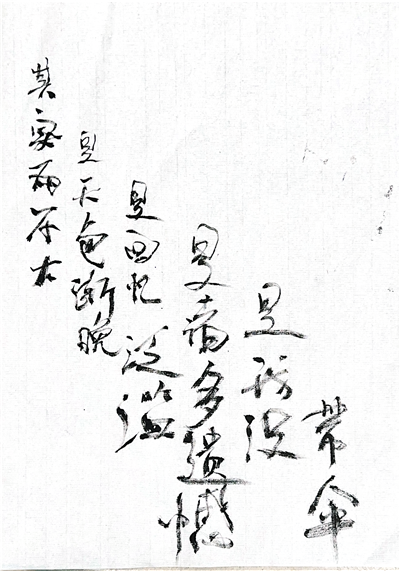 其实雨不大
是天色渐晚
是回忆泛滥
是多遗憾
是我没
带伞